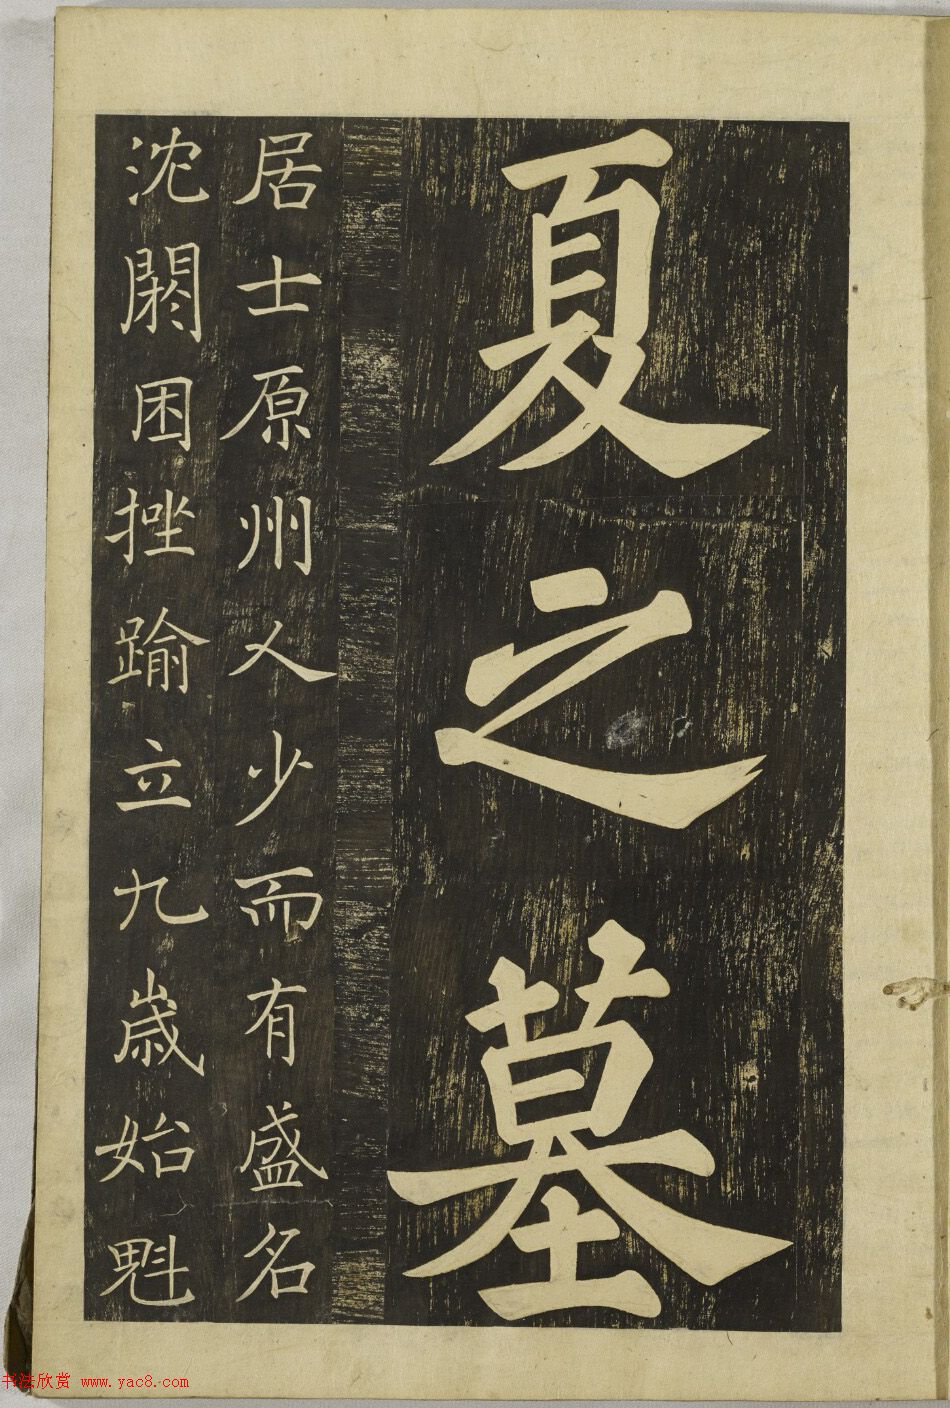 夏之墓
居士原州人少而有盛名
沈閼困挫踰立九歳始魁
书法欣赏 www.yac8.com